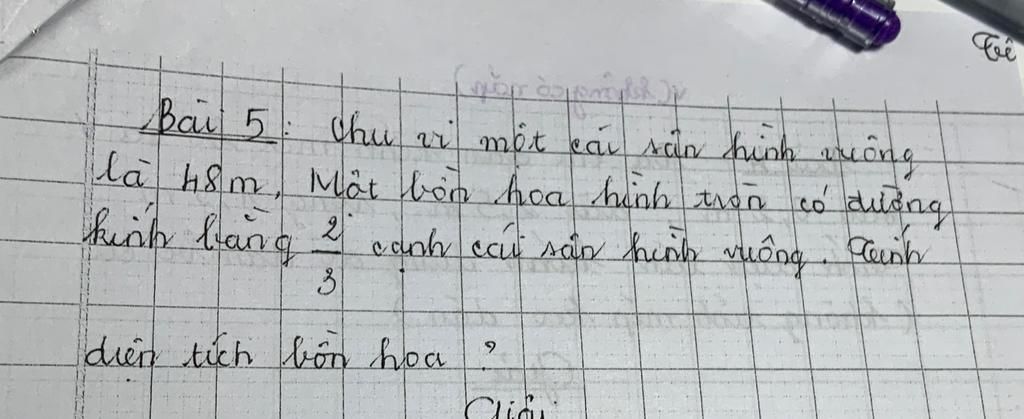 Tê
Bài 5: Chu vi một cái sân hình vuông
là 48m, Một bồn hoa hình tròn có đường
kính bằng 2/3 cạnh cái sân hình vuông. Tính
diện tích bồn hoa ?
Giải